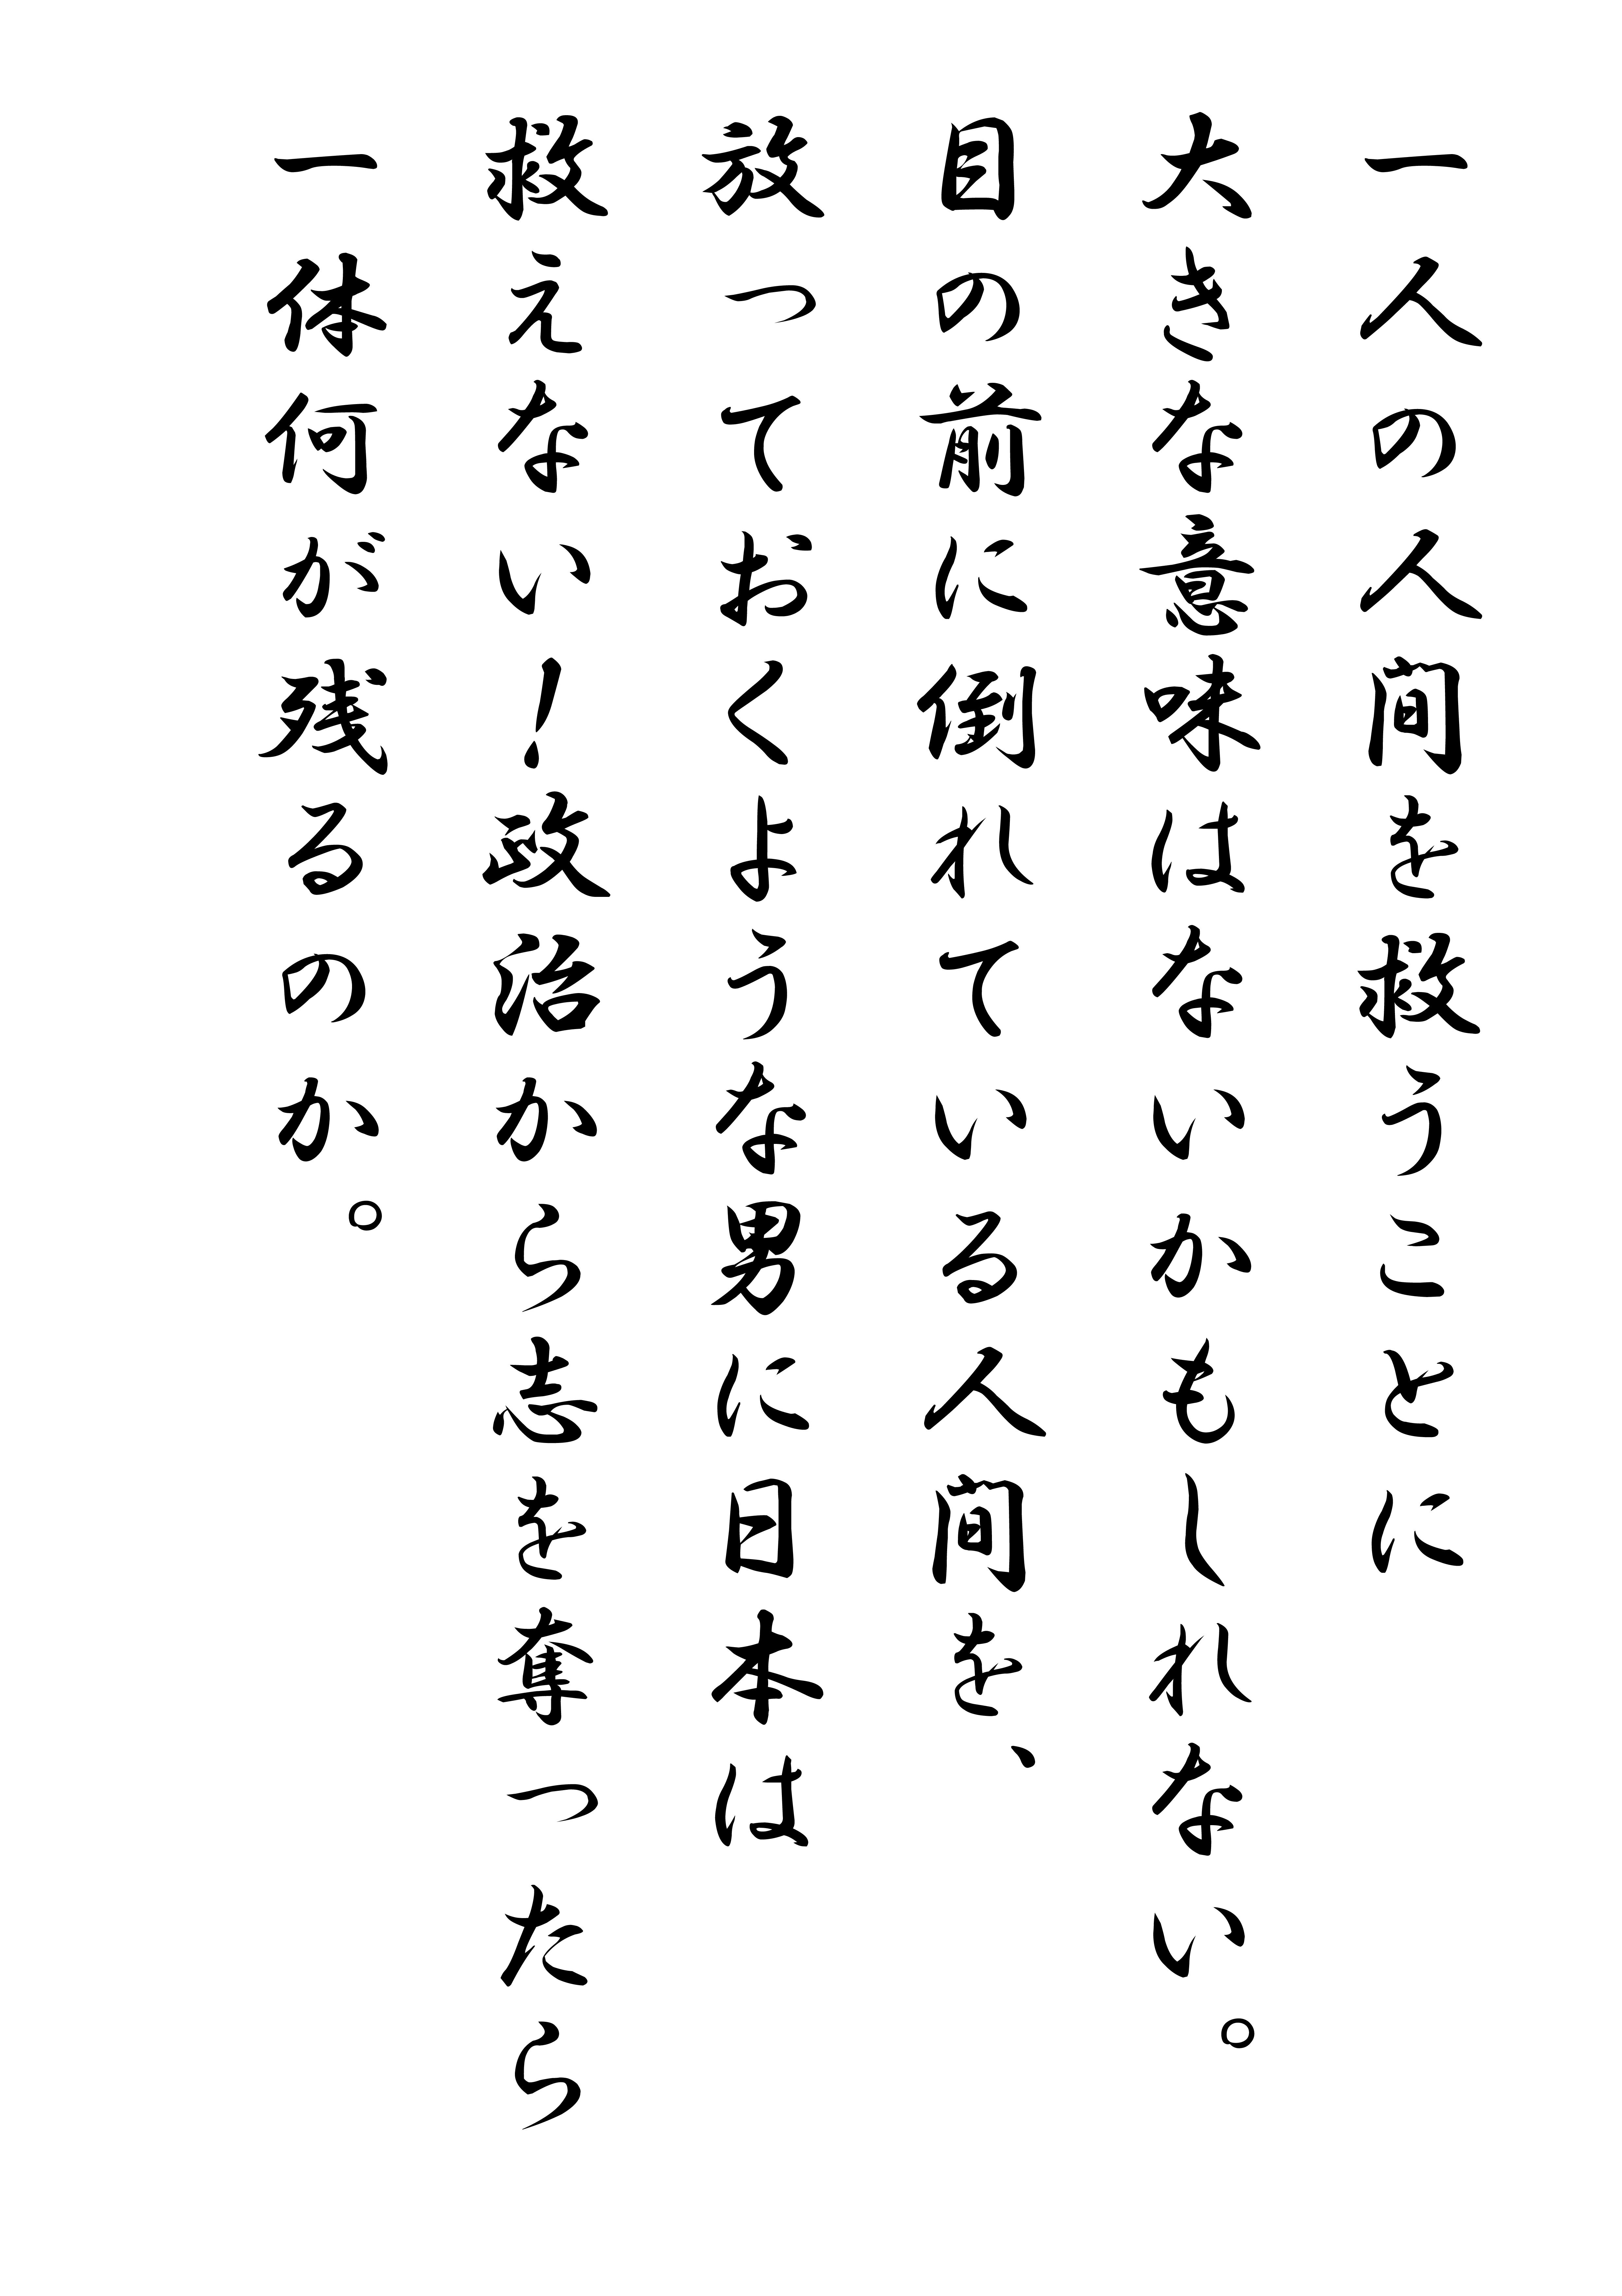 一人の人間を救うことに
大きな意味はないかもしれない。
目の前に倒れている人間を、
放っておくような男に日本は
救えない！政治から志を奪ったら
一体何が残るのか。